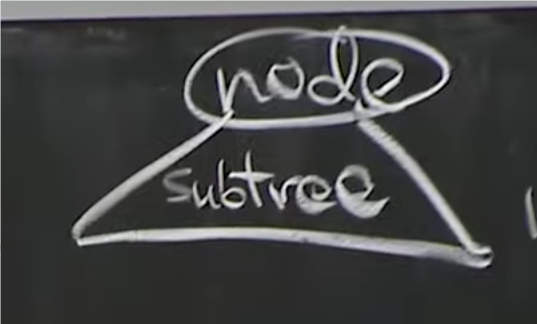 node
subtree